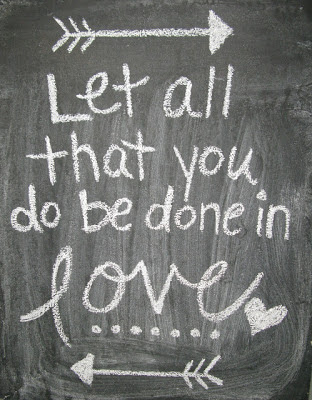 Let all
that you
do be done in
love